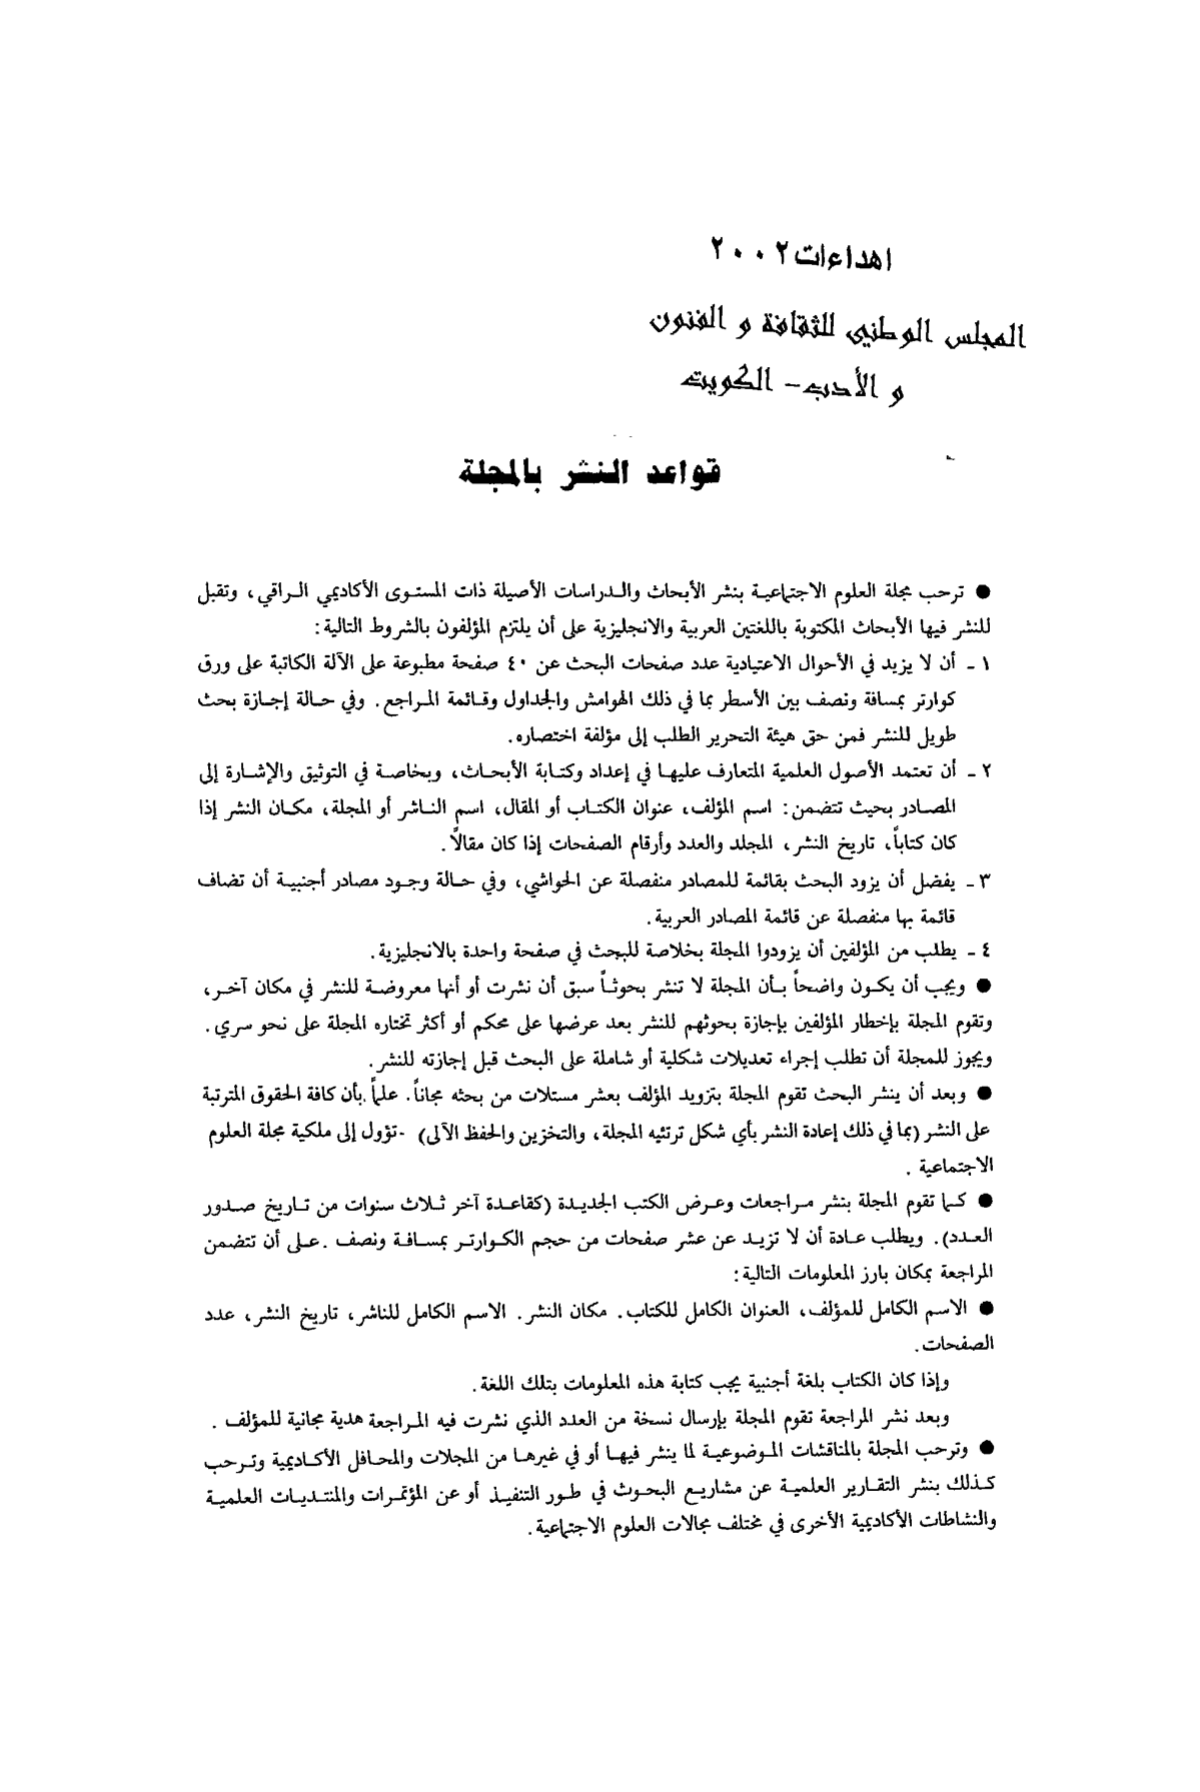 اهداءات ٢٠٠٢
المجلس الوطني للثقافة و الفنون
و الأدب - الكويت
قواعد النشر بالمجلة
● ترحب مجلة العلوم الاجتماعية بنشر الأبحاث والدراسات الأصيلة ذات المستوى الأكاديمي الراقي، وتقبل
للنشر فيها الأبحاث المكتوبة باللغتين العربية والانجليزية على أن يلتزم المؤلفون بالشروط التالية:
١ ـ أن لا يزيد في الأحوال الاعتيادية عدد صفحات البحث عن ٤٠ صفحة مطبوعة على الآلة الكاتبة على ورق
كوارتر بمسافة ونصف بين الأسطر بما في ذلك الهوامش والجداول وقائمة المراجع. وفي حالة إجازة بحث
طويل للنشر فمن حق هيئة التحرير الطلب إلى مؤلفة اختصاره.
٢ ـ أن تعتمد الأصول العلمية المتعارف عليها في إعداد وكتابة الأبحاث، وبخاصة في التوثيق والإشارة إلى
المصادر بحيث تتضمن: اسم المؤلف، عنوان الكتاب أو المقال، اسم الناشر أو المجلة، مكان النشر إذا
كان كتاباً، تاريخ النشر، المجلد والعدد وأرقام الصفحات إذا كان مقالاً.
٣ ـ يفضل أن يزود البحث بقائمة للمصادر منفصلة عن الحواشي، وفي حالة وجود مصادر أجنبية أن تضاف
قائمة بها منفصلة عن قائمة المصادر العربية.
٤ ـ يطلب من المؤلفين أن يزودوا المجلة بخلاصة للبحث في صفحة واحدة بالانجليزية.
● ويجب أن يكون واضحاً بأن المجلة لا تنشر بحوثاً سبق أن نشرت أو أنها معروضة للنشر في مكان آخر،
وتقوم المجلة بإخطار المؤلفين بإجازة بحوثهم للنشر بعد عرضها على محكم أو أكثر تختاره المجلة على نحو سري.
ويجوز للمجلة أن تطلب إجراء تعديلات شكلية أو شاملة على البحث قبل إجازته للنشر.
● وبعد أن ينشر البحث تقوم المجلة بتزويد المؤلف بعشر مستلات من بحثه مجاناً. علماً بأن كافة الحقوق المترتبة
على النشر (بما في ذلك إعادة النشر بأي شكل ترتئيه المجلة، والتخزين والحفظ الآلى) - تؤول إلى ملكية مجلة العلوم
الاجتماعية .
● كما تقوم المجلة بنشر مراجعات وعرض الكتب الجديدة (كقاعدة آخر ثلاث سنوات من تاريخ صدور
العدد). ويطلب عادة أن لا تزيد عن عشر صفحات من حجم الكوارتر بمسافة ونصف . على أن تتضمن
المراجعة بمكان بارز المعلومات التالية:
● الاسم الكامل للمؤلف، العنوان الكامل للكتاب. مكان النشر. الاسم الكامل للناشر، تاريخ النشر، عدد
الصفحات.
وإذا كان الكتاب بلغة أجنبية يجب كتابة هذه المعلومات بتلك اللغة.
وبعد نشر المراجعة تقوم المجلة بإرسال نسخة من العدد الذي نشرت فيه المراجعة هدية مجانية للمؤلف .
● وترحب المجلة بالمناقشات الموضوعية لما ينشر فيها أو في غيرها من المجلات والمحافل الأكاديمية وترحب
كذلك بنشر التقارير العلمية عن مشاريع البحوث في طور التنفيذ أو عن المؤتمرات والمنتديات العلمية
والنشاطات الأكاديمية الأخرى في مختلف مجالات العلوم الاجتماعية.